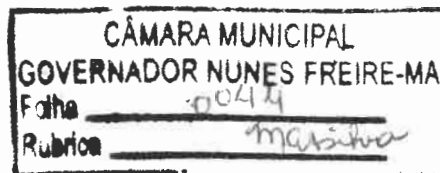 CÂMARA MUNICIPAL
GOVERNADOR NUNES FREIRE-MA
Folha 0044
Rubrica